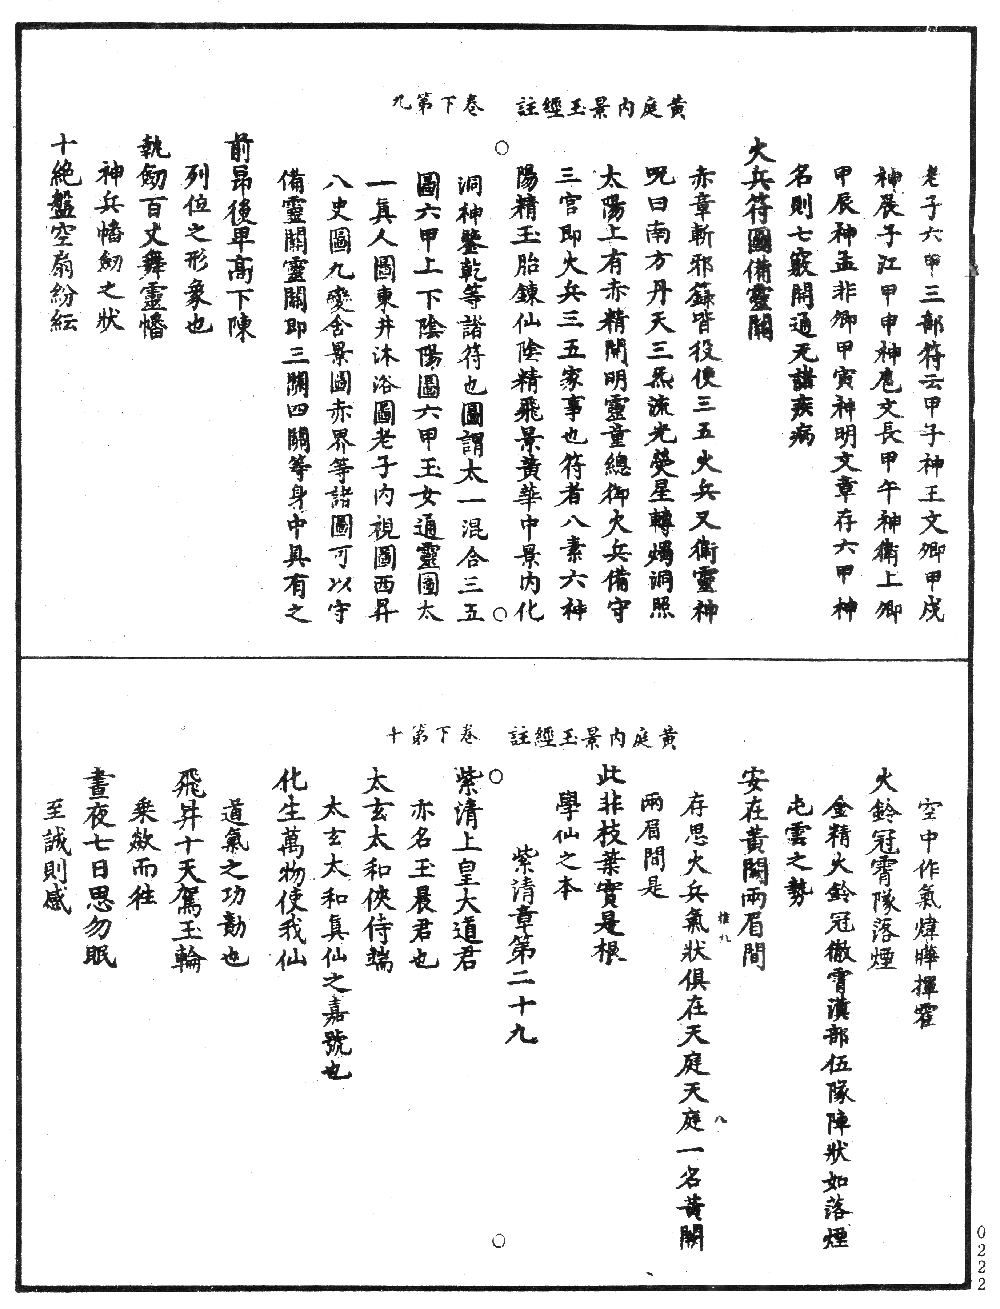 黃庭內景玉經註　卷下第九
老子六甲三部符云甲子神王文卿甲戌
神展子江甲申神扈文長甲午神衛上卿
甲辰神孟非卿甲寅神明文章存六甲神
名則七竅開通无諸疾病
火兵符圖備靈關
赤章斬邪籙皆役使三五火兵又衛靈神
呪曰南方丹天三炁流光熒星轉燭洞照
太陽上有赤精開明靈童總御火兵備守
三官即火兵三五家事也符者八素六神
陽精玉胎鍊仙陰精飛景黃華中景內化
洞神鑒乾等諸符也圖謂太一混合三五
圖六甲上下陰陽圖六甲玉女通靈圖太
一真人圖東井沐浴圖老子內視圖西昇
八史圖九變含景圖赤界等諸圖可以守
備靈關靈關即三關四關等身中具有之
前昂後卑高下陳
列位之形象也
執劒百丈舞靈幡
神兵幡劒之狀
十絕盤空扇紛紜
黃庭內景玉經註　卷下第十
空中作氣煒曄揮霍
火鈴冠霄隊落煙
金精火鈴冠徹霄漢部伍隊陣狀如落煙
屯雲之勢
安在黃闕兩眉間
存思火兵氣狀俱在天庭天庭一名黃闕
兩眉間是
此非枝葉實是根
學仙之本
紫清章第二十九
紫清上皇大道君
亦名玉晨君也
太玄太和俠侍端
太玄太和真仙之嘉號也
化生萬物使我仙
道氣之功勳也
飛昇十天駕玉輪
乘歘而徃
晝夜七日思勿眠
至誠則感
惟九
八
0222